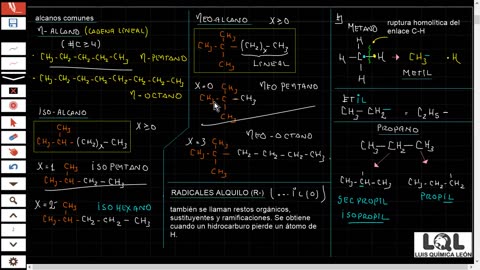 alcanos comunes
n-ALCANO (CADENA LINEAL)
(#C≥4)
CH₃-CH₂-CH₂-CH₂-CH₃ n-PENTANO
CH₃-CH₂-CH₂-CH₂-CH₂-CH₂-CH₂-CH₃
n-OCTANO
ISO-ALCANO
CH₃
CH₃-CH-(CH₂)ₓ-CH₃
X≥0
X=1
CH₃
CH₃-CH-CH₂-CH₃
ISOPENTANO
X=2
ISOHEXANO
CH₃
CH₃-CH-CH₂-CH₂-CH₃
NEO-ALCANO X≥0
CH₃
CH₃-C-(CH₂)ₓ-CH₃
CH₃
LINEAL
X=0
CH₃
CH₃-C-CH₃
CH₃
NEO PENTANO
X=3
NEO-OCTANO
CH₃
CH₃-C-CH₂-CH₂-CH₂-CH₃
CH₃
RADICALES ALQUILO (R-) (...il(o))
también se llaman restos orgánicos,
sustituyentes y ramificaciones. Se obtiene
cuando un hidrocarburo pierde un átomo de
H.
METANO
ruptura homolítica del
enlace C-H
H
H-C•|•H → CH₃- •H
H
METIL
ETIL
CH₃-CH₂- = C₂H₅-
PROPANO
CH₃-CH₂-CH₃
CH₃-CH-CH₃
CH₃-CH₂-CH₂
SEC PROPIL
PROPIL
ISOPROPIL
LQL
LUIS QUÍMICA LEÓN